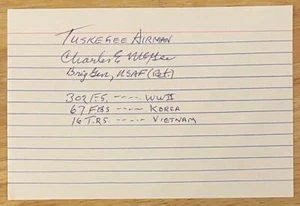 TUSKEGEE AIRMAN
Charles E McGee
Brig Gen, USAF (Ret.)
302 F.S. ---- WWII
67 FBS ---- KOREA
16 T.R.S. ---- VIETNAM